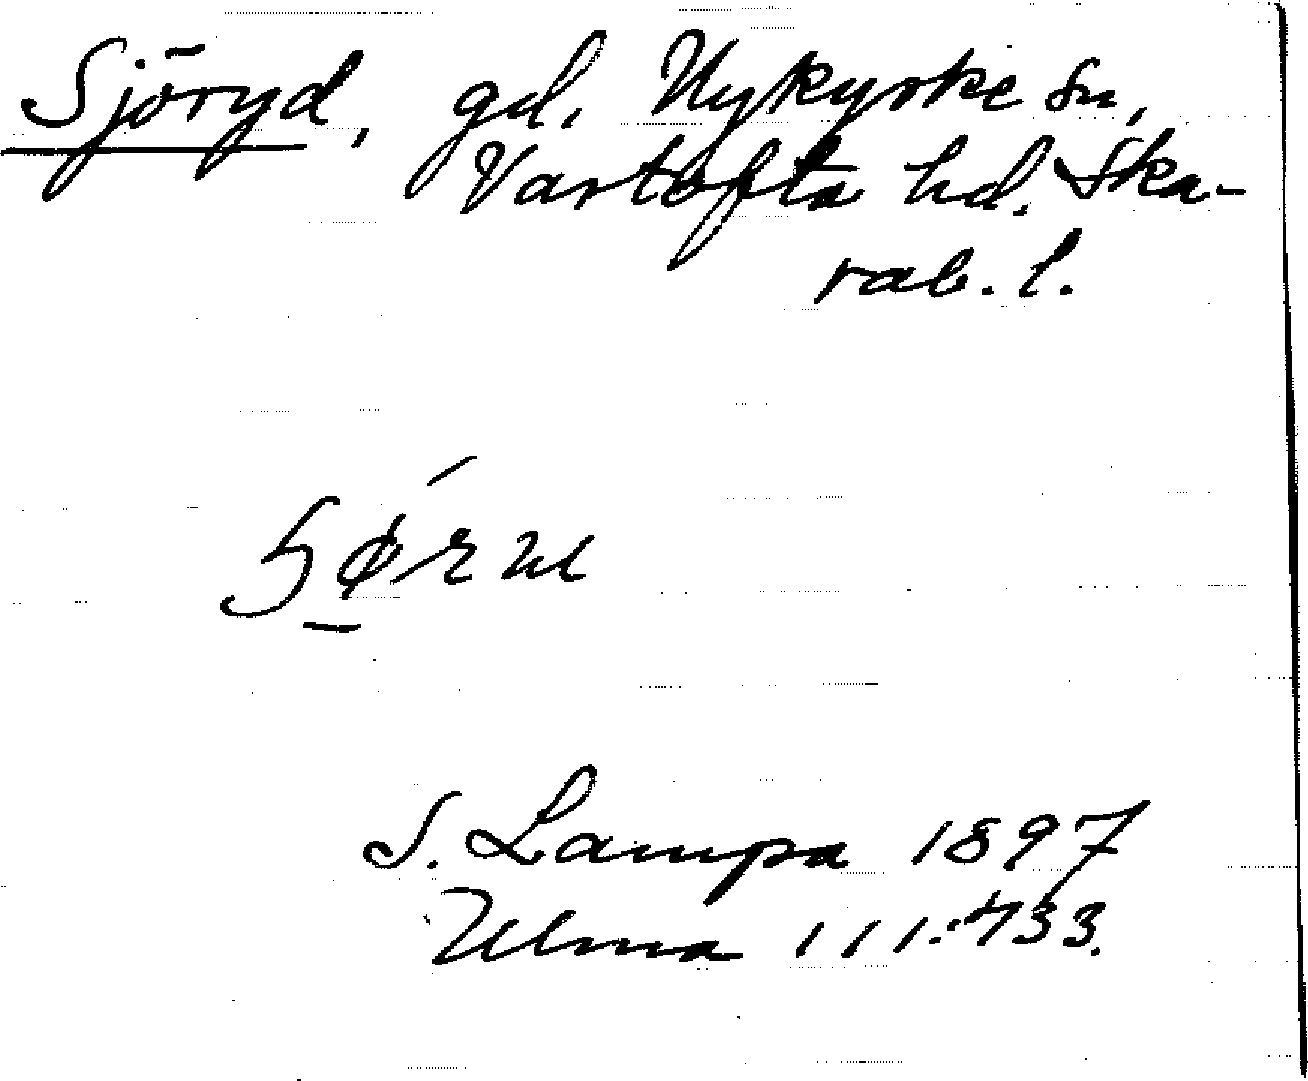 Sjöryd, gd. Nykyrke sn,
Vartofta hd. Ska-
rab. l.
S. Lampa 1897
Ulma 111:433.